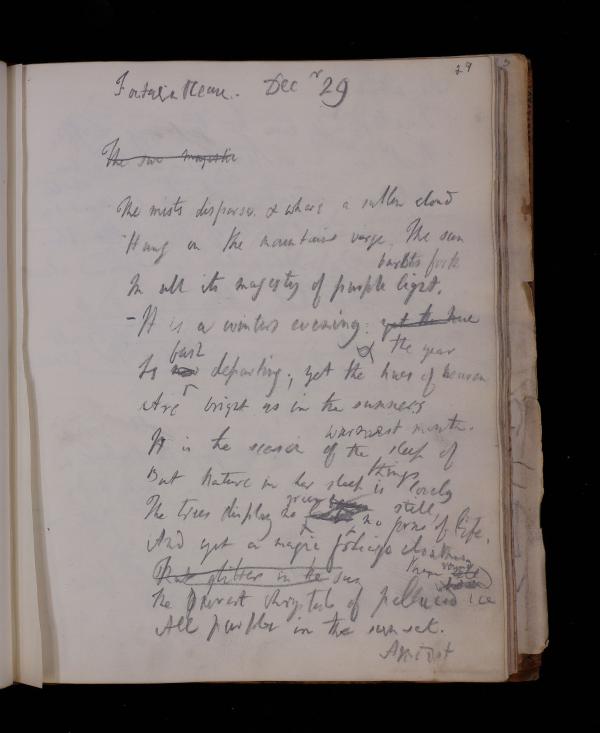 29
Fontainbleau. Decr 29
The sun majestic
The mists disperse & where a sullen cloud
Hung on the mountains verge. The sun
bursts forth
In all its majesty of purple light.
- It is a winters evening: yet the hue
& the year
fast
Is now departing; yet the hues of heaven
Are bright as in the summers
warmest month.
It is the season of the sleep of
things
But Nature in her sleep is lovely
still
green
The trees display no no forms of life.
And yet a magic foliage clothes
them
That glitter in the sun
The purest chrystals of pellucid ice
All purple in the sunset.
Amidst